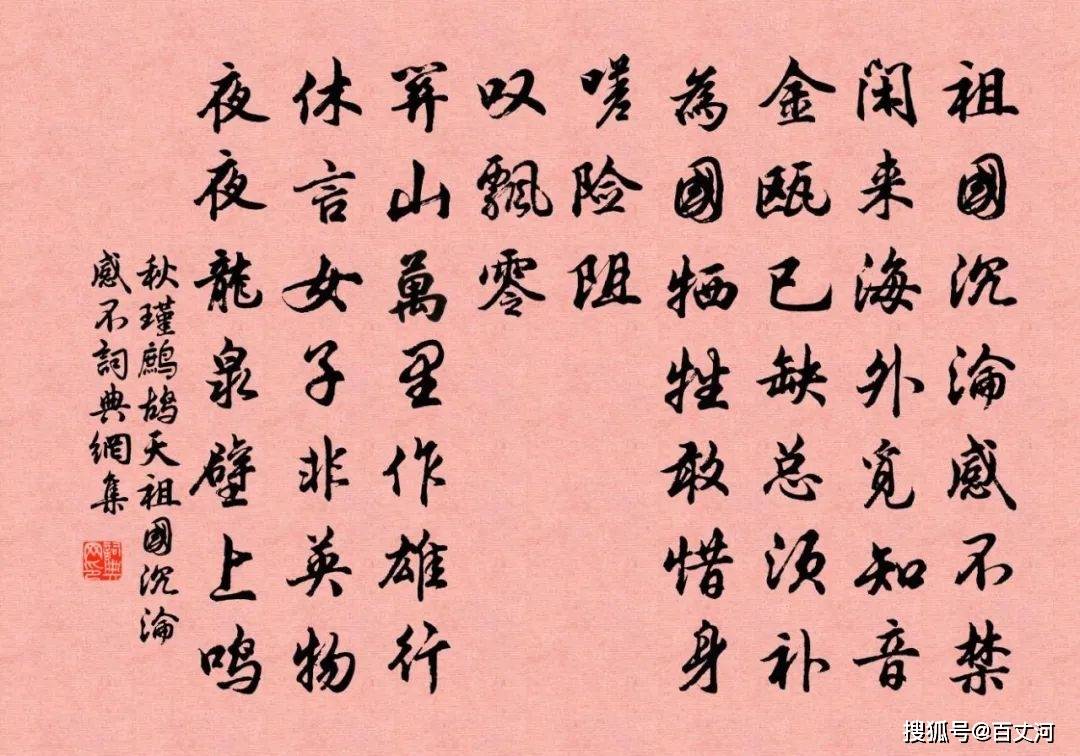 祖國沉淪感不禁
闲来海外觅知音
金瓯已缺总须补
為國牺牲敢惜身
嗟险阻
叹飄零
関山萬里作雄行
休言女子非英物
夜夜龍泉壁上鸣
秋瑾鹧鸪天祖國沉淪
感不詞典網集
詞典網印
搜狐号@百丈河